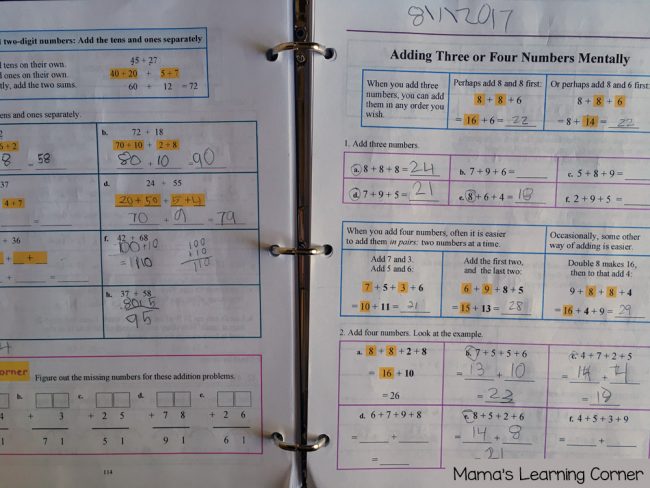 two-digit numbers: Add the tens and ones separately
tens on their own.
ones on their own.
tly, add the two sums.
45 + 27
40 + 20 + 5 + 7
60 + 12 = 72
ens and ones separately.
6 + 2
8 = 58
b. 72 + 18
70 + 10 + 2 + 8
80 + 10 = 90
37
4 + 7
=
d. 24 + 55
20 + 50 + 5 + 4
70 + 9 = 79
+ 36
+
+ =
f. 42 + 68
100 + 10
= 1110
100
+ 10
110
h. 37 + 58
80 15
95
orner Figure out the missing numbers for these addition problems.
b. c. d. e.
4 + 3 + 2 5 + 7 8 + 2 6
1 7 1 5 1 9 1 6 1
114
8/1/2017
Adding Three or Four Numbers Mentally
When you add three
numbers, you can add
them in any order you
wish.
Perhaps add 8 and 8 first:
8 + 8 + 6
= 16 + 6 = 22
Or perhaps add 8 and 6 first:
8 + 8 + 6
= 8 + 14 = 22
1. Add three numbers.
a. 8 + 8 + 8 = 24 b. 7 + 9 + 6 = c. 5 + 8 + 9 =
d. 7 + 9 + 5 = 21 e. 8 + 6 + 4 = 18 f. 2 + 9 + 5 =
When you add four numbers, often it is easier
to add them in pairs: two numbers at a time.
Occasionally, some other
way of adding is easier.
Add 7 and 3.
Add 5 and 6:
7 + 5 + 3 + 6
= 10 + 11 = 21
Add the first two,
and the last two:
6 + 9 + 8 + 5
= 15 + 13 = 28
Double 8 makes 16,
then to that add 4:
9 + 8 + 8 + 4
= 16 + 4 + 9 = 29
2. Add four numbers. Look at the example.
a. 8 + 8 + 2 + 8
= 16 + 10
= 26
b. 7 + 5 + 5 + 6
= 13 + 10
= 23
c. 4 + 7 + 2 + 5
= 14 + 4
= 18
d. 6 + 7 + 9 + 8
= +
=
e. 8 + 5 + 2 + 6
= 14 + 8
= 21
f. 4 + 5 + 3 + 9
= +
=
Mama's Learning Corner